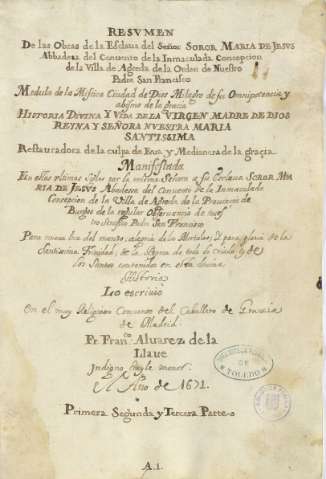 RESVMEN
De las Obras de la Esclava del Señor SOROR MARIA DE JESVS
Abbadesa del Convento de la Inmaculada Concepcion
de la Villa de Agreda de la Orden de Nuestro
Padre San Francisco
Modulo de la Mistica Ciudad de Dios Milagro de su Omnipotencia y
abismo de la gracia
HISTORIA DIVINA Y VIDA DE LA VIRGEN MADRE DE DIOS
REYNA Y SEÑORA NVESTRA MARIA
SANTISSIMA
Restauradora de la culpa de Eva, y Medianera de la gracia
Manifestada
En estos ultimos siglos por la misma Señora a su Esclava SOROR MA
RIA DE JESVS Abadesa del Convento de la Inmaculada
Concepcion de la Villa de Agreda de la Provincia de
Burgos de la regular Observancia de nues
tro Padre San Francisco
Para nueva luz del mundo, alegria de los Mortales, y para gloria de la
Santissima Trinidad, de la Reyna de todo lo criado, y de
los Santos contenidos en esta divina
Historia
Lo escrivio
En el muy Religioso Convento del Cavallero de Gracia
de Madrid
Fr. Franco. Alvarez de la
Llave
Indigno frayle menor.
Año de 1671.
Primera Segunda y Tercera Parte
A.1.
DE
TOLEDO